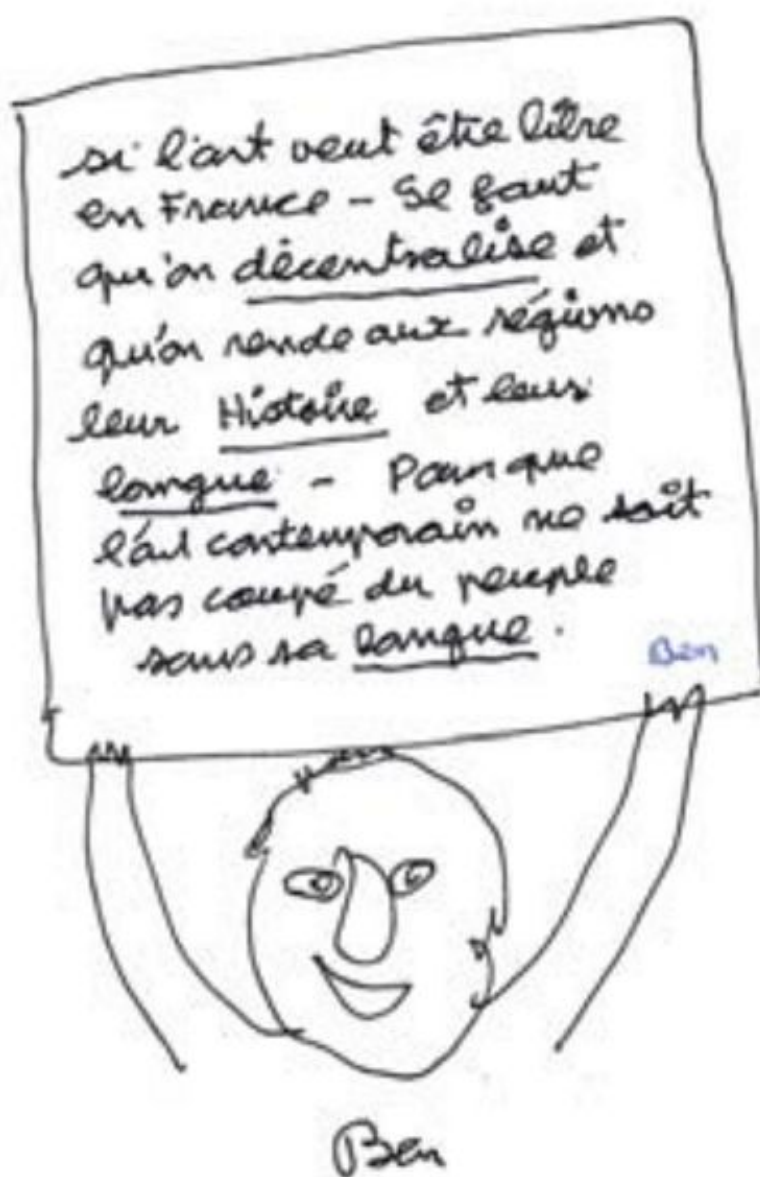 si l'art veut être libre
en France - Il faut
qu'on décentralise et
qu'on rende aux régions
leur Histoire et leur
langue - Pour que
l'art contemporain ne soit
pas coupé du peuple
sans sa langue.
Ben
Ben